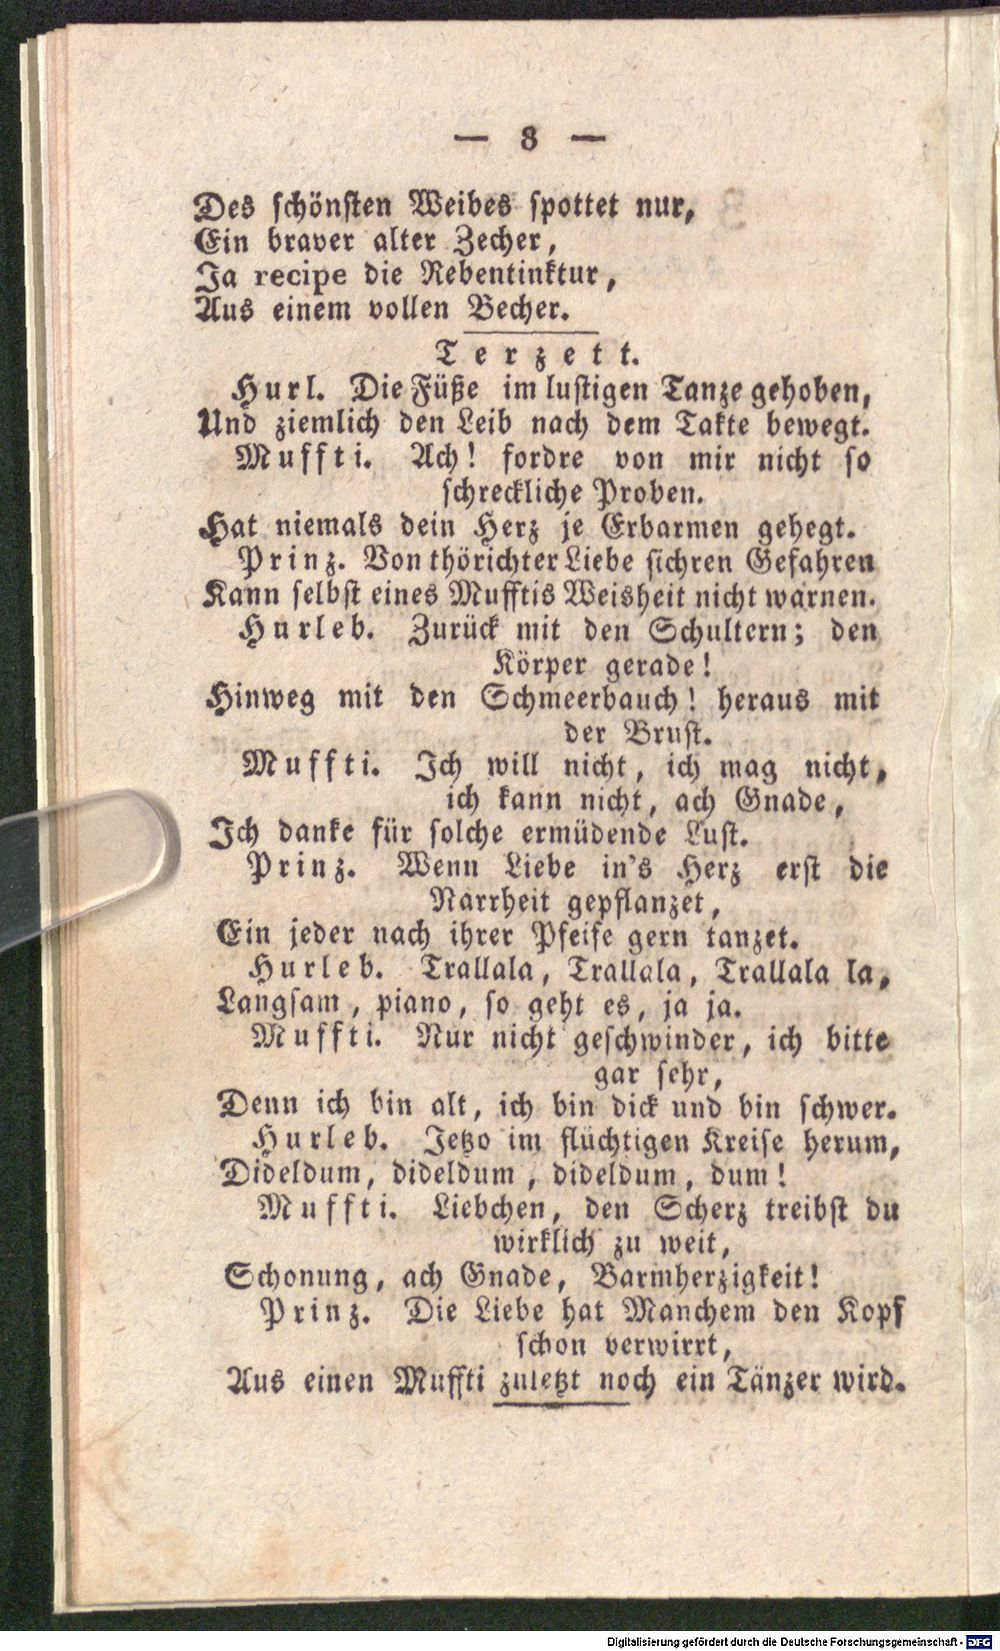 — 8 —
Des schönsten Weibes spottet nur,
Ein braver alter Zecher,
Ja recipe die Rebentinktur,
Aus einem vollen Becher.
Terzett.
Hurl. Die Füße im lustigen Tanze gehoben,
Und ziemlich den Leib nach dem Takte bewegt.
Muffti. Ach! fordre von mir nicht so
schreckliche Proben.
Hat niemals dein Herz je Erbarmen gehegt.
Prinz. Von thörichter Liebe sichren Gefahren
Kann selbst eines Mufftis Weisheit nicht warnen.
Hurleb. Zurück mit den Schultern; den
Körper gerade!
Hinweg mit den Schmeerbauch! heraus mit
der Brust.
Muffti. Ich will nicht, ich mag nicht,
ich kann nicht, ach Gnade,
Ich danke für solche ermüdende Lust.
Prinz. Wenn Liebe in's Herz erst die
Narrheit gepflanzet,
Ein jeder nach ihrer Pfeife gern tanzet.
Hurleb. Trallala, Trallala, Trallala la,
Langsam, piano, so geht es, ja ja.
Muffti. Nur nicht geschwinder, ich bitte
gar sehr,
Denn ich bin alt, ich bin dick und bin schwer.
Hurleb. Jetzo im flüchtigen Kreise herum,
Dideldum, dideldum, dideldum, dum!
Muffti. Liebchen, den Scherz treibst du
wirklich zu weit,
Schonung, ach Gnade, Barmherzigkeit!
Prinz. Die Liebe hat Manchem den Kopf
schon verwirrt,
Aus einen Muffti zuletzt noch ein Tänzer wird.
Digitalisierung gefördert durch die Deutsche Forschungsgemeinschaft - DFG